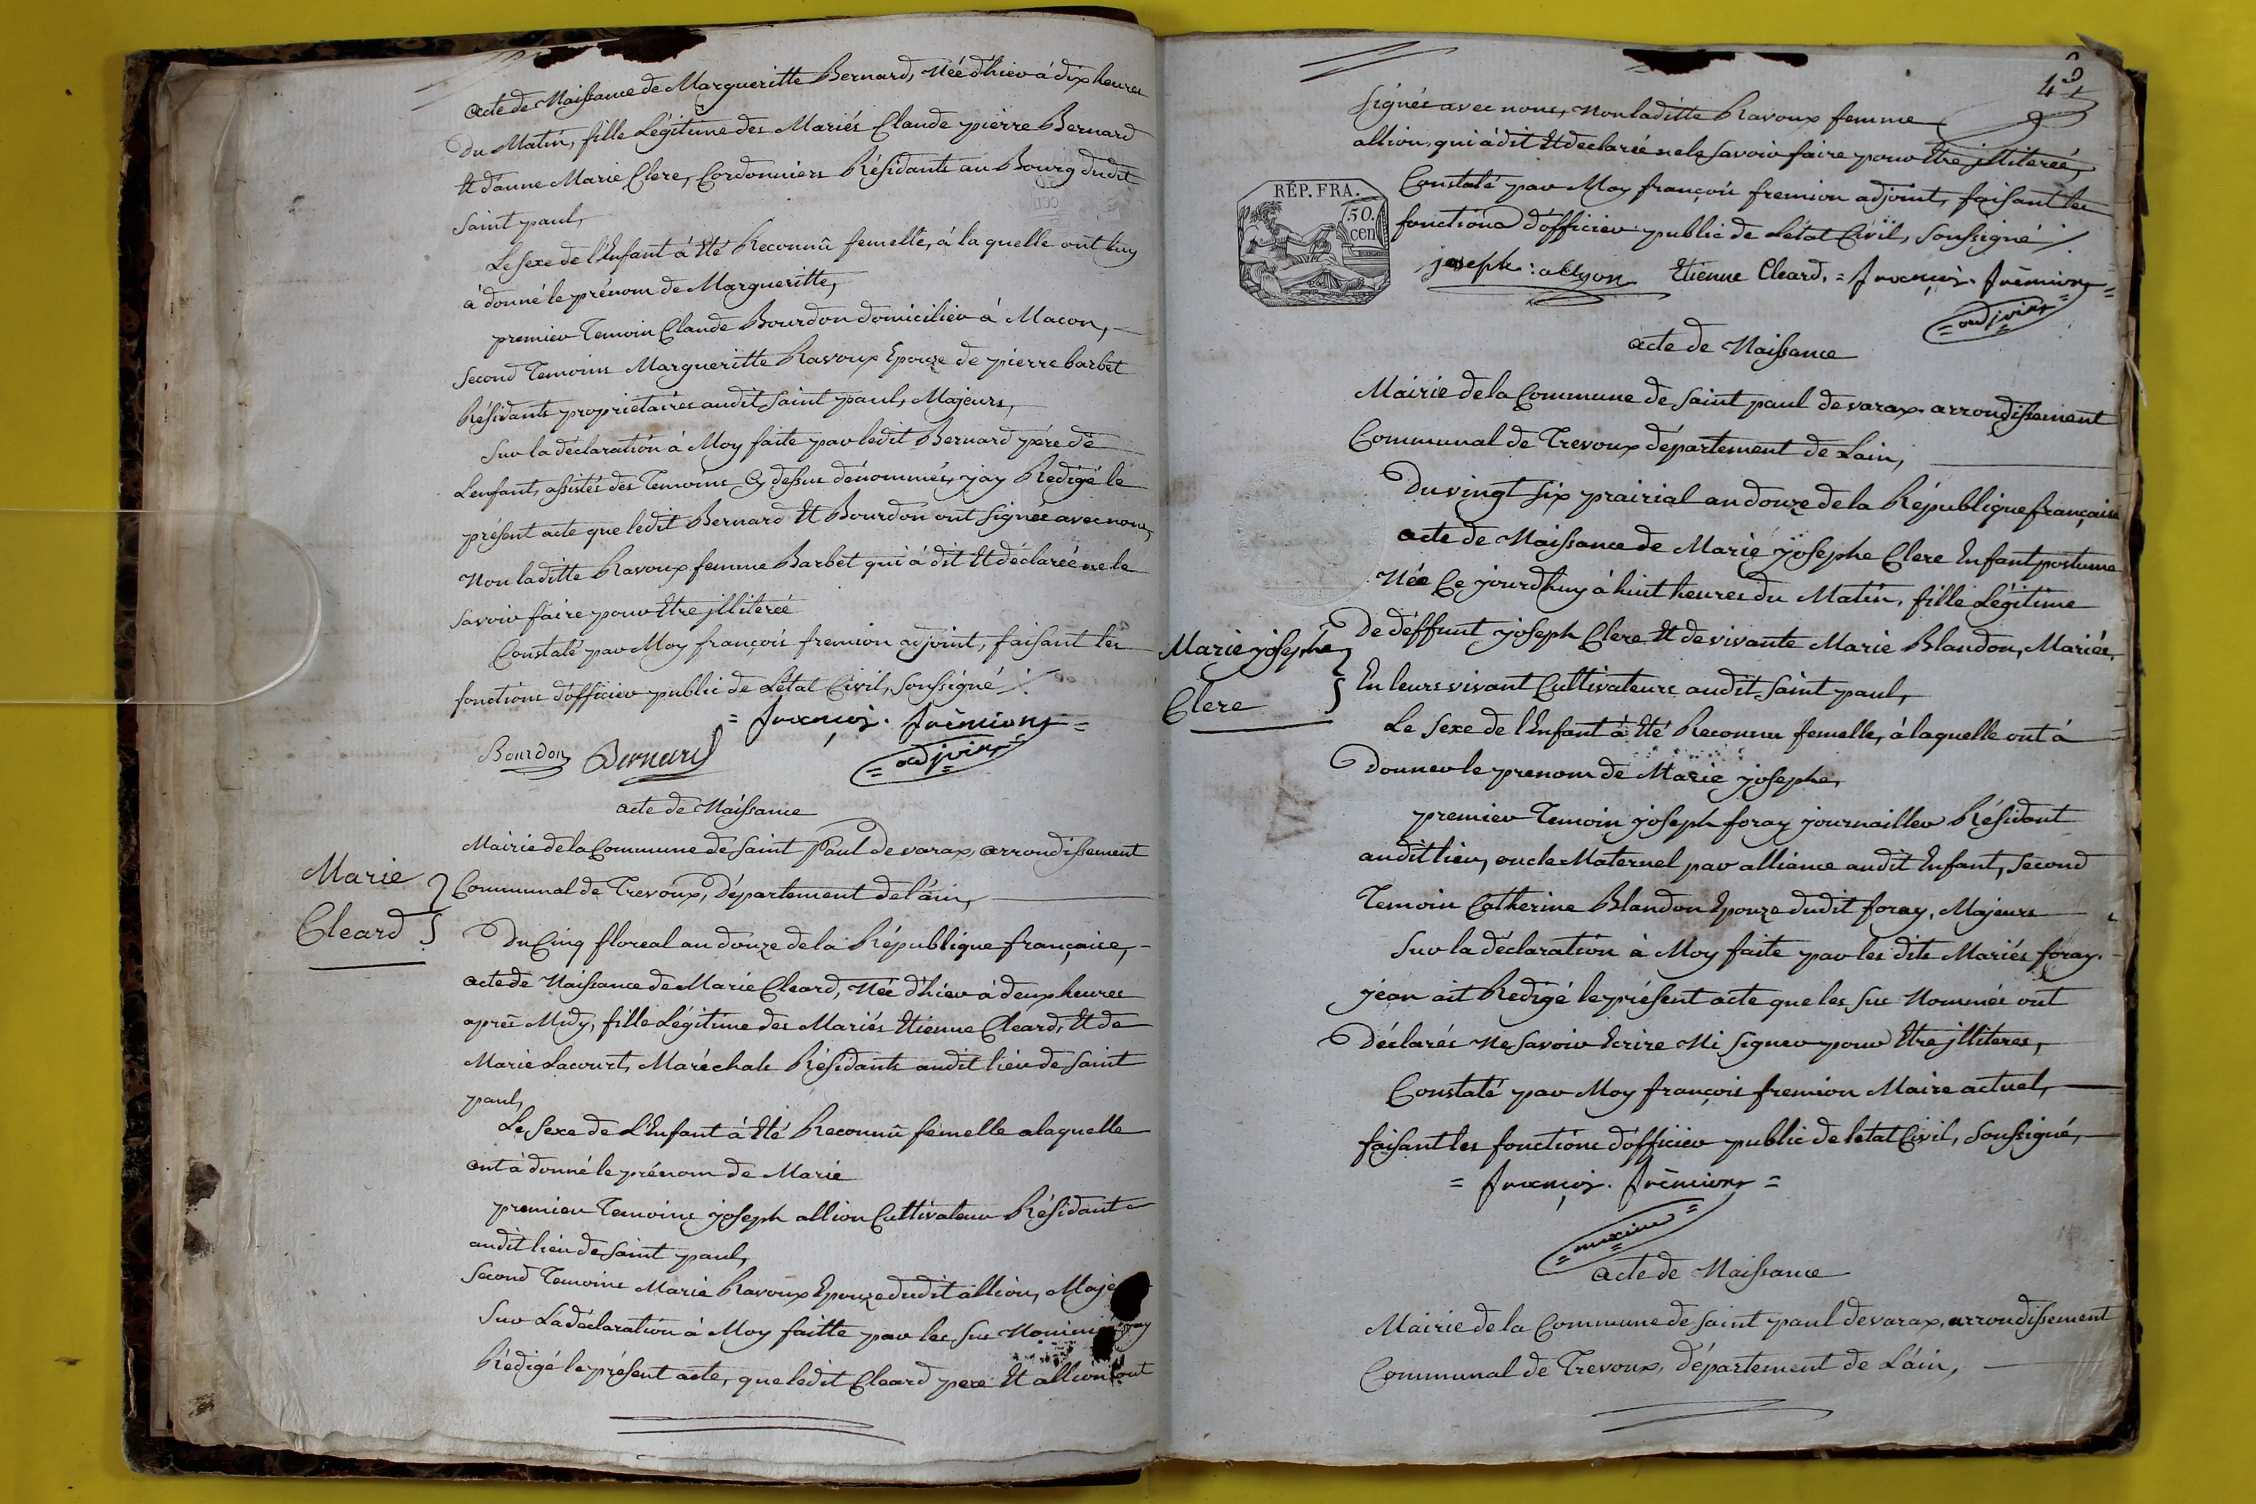 acte de Naissance de Margueritte Bernard, Née d'hier à dix heures
du Matin, fille Légitime des Mariés Claude pierre Bernard
Et d'anne Marie Clere, Cordonniers Résidants au Bourg dudit
saint paul,
Le Sexe de l'Enfant à Eté Reconnû femelle, à la quelle ont luy
à donné le prénom de Margueritte,
premier Temoin Claude Bourdon domicilier à Macon,
second Temoins Margueritte Ravoux Epouze de pierre barbet
Résidants proprietaires audit saint paul, Majeurs,
Sur la déclaration à Moy faite par ledit Bernard père de
L'enfant, assistés des Temoins Cy dessus dénommés, j'ay Redigé le
présent acte que ledit Bernard Et Bourdon ont Signés avec nous
Non laditte Ravoux femme Barbet qui à dit Et déclarée ne le
savoir faire pour Etre jlliterée
Constaté par Moy françois fremion adjoint, faisant les
fonctions d'officier public de L'état Civil, Soussigné
= françois. frèmion =
Bourdon Bernard = adjoint =
acte de Naissance
Mairie de la Commune de Saint Paul de varax, arrondissement
Communal de Trevoux, Département de l'ain,
Marie
Cleard
Du Cinq floreal an douze de la République française,
acte de Naissance de Marie Cleard, Née d'hier à deux heures
après Midy, fille Légitime des Mariés Etienne Cleard, Et de
Marie Lacourt, Maréchals Résidants audit lieu de Saint
paul,
Le Sexe de L'Enfant à Eté Reconnû femelle a laquelle
ont à donné le prénom de Marie
premier Temoins joseph allion Cultivateur Résidant
audit lieu de Saint paul,
Second Temoins Marie Ravoux Epouze dudit allion, Maje
Sur La déclaration à Moy faitte par les Sus Nommés j'ay
Rédigé le présent acte, que ledit Cleard pere Et allion ont
signés avec nous, Non laditte Ravoux femme
allion, qui à dit Et declarée ne le savoir faire pour Etre jlliterée,
RÉP. FRA.
50.
cen
Constaté par Moy françois fremion adjoint, faisant les
fonctions d'officier public de L'état Civil, Soussigné
joseph : allyon Etienne Cleard. = françois. frèmion =
= adjoint =
acte de Naissance
Mairie de la Commune de saint paul de varax arrondissement
Communal de Trevoux département de Lain,
Du vingt six prairial an douze de la République française
acte de Naissance de Marie josephe Clere Enfant postume
Née Ce jourdhuy à huit heures du Matin, fille Légitime
Marie josephe
Clere
De déffunt joseph Clere Et de vivante Marie Blandon, Mariés,
En leurs vivant Cultivateurs audit saint paul,
Le Sexe de l'Enfant à Eté Reconnu femelle, à laquelle ont à
donner le prenom de Marie josephe,
premier Temoin joseph foray journailler Résidant
audit lieu, oncle Maternel par alliance audit Enfant, second
Temoin Catherine Blandon Epouze dudit foray, Majeurs
Sur la déclaration à Moy faite par les dits Mariés foray.
jean ait Redigé le présent acte que les sus Nommés ont
Déclarés Ne savoir Ecrire Ni signer pour Etre jlliteres,
Constaté par Moy françois fremion Maire actuel,
faisant les fonctions d'officier public de letat Civil, Soussigné,
= françois. frèmion =
= maire =
acte de Naissance
Mairie de la Commune de Saint paul de varax, arrondissement
Communal de Trevoux, département de L'ain,